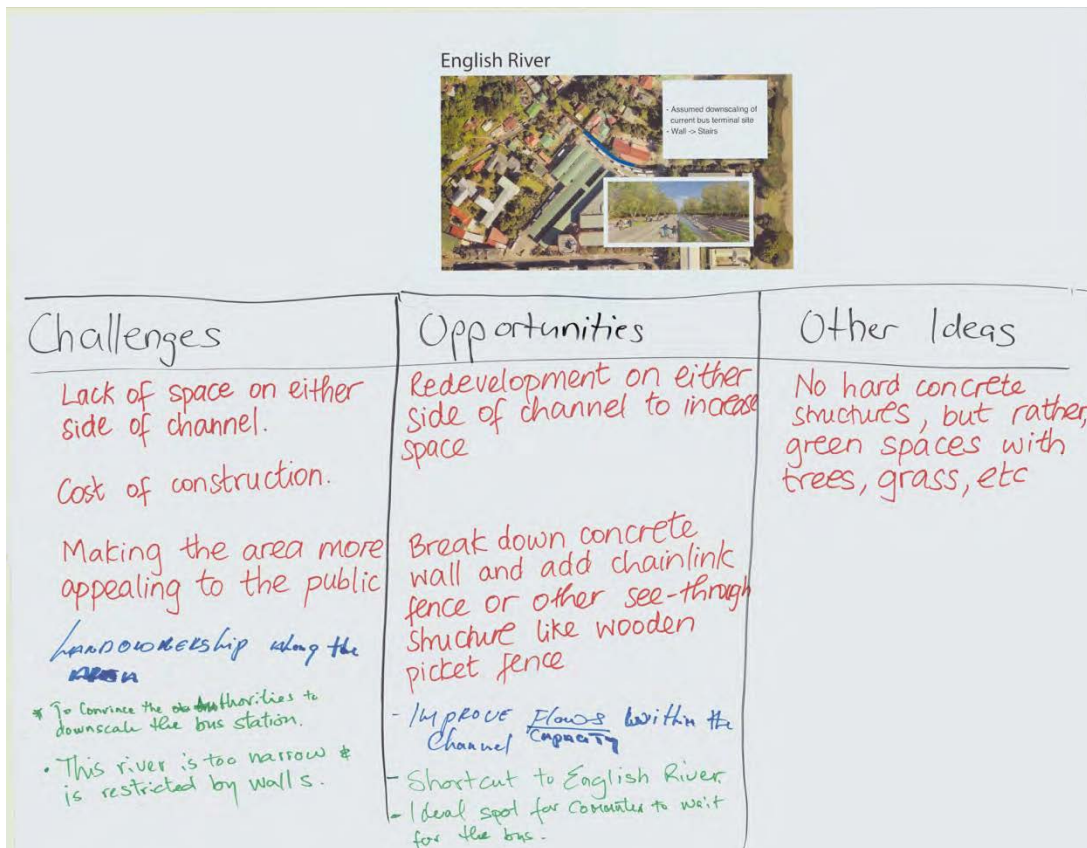 English River
- Assumed downscaling of
current bus terminal site
- Wall -> Stairs
Challenges
Lack of space on either
side of channel.
Cost of construction.
Making the area more
appealing to the public
LANDOWNERSHIP along the
AREA
* To Convince the authorities to
downscale the bus station.
• This river is too narrow &
is restricted by walls.
Opportunities
Redevelopment on either
side of channel to increase
space
Break down concrete
wall and add chainlink
fence or other see-through
structure like wooden
picket fence
- IMPROVE Flows within the
Channel CAPACITY
- Shortcut to English River
- Ideal spot for commuter to wait
for the bus.
Other Ideas
No hard concrete
structures, but rather,
green spaces with
trees, grass, etc